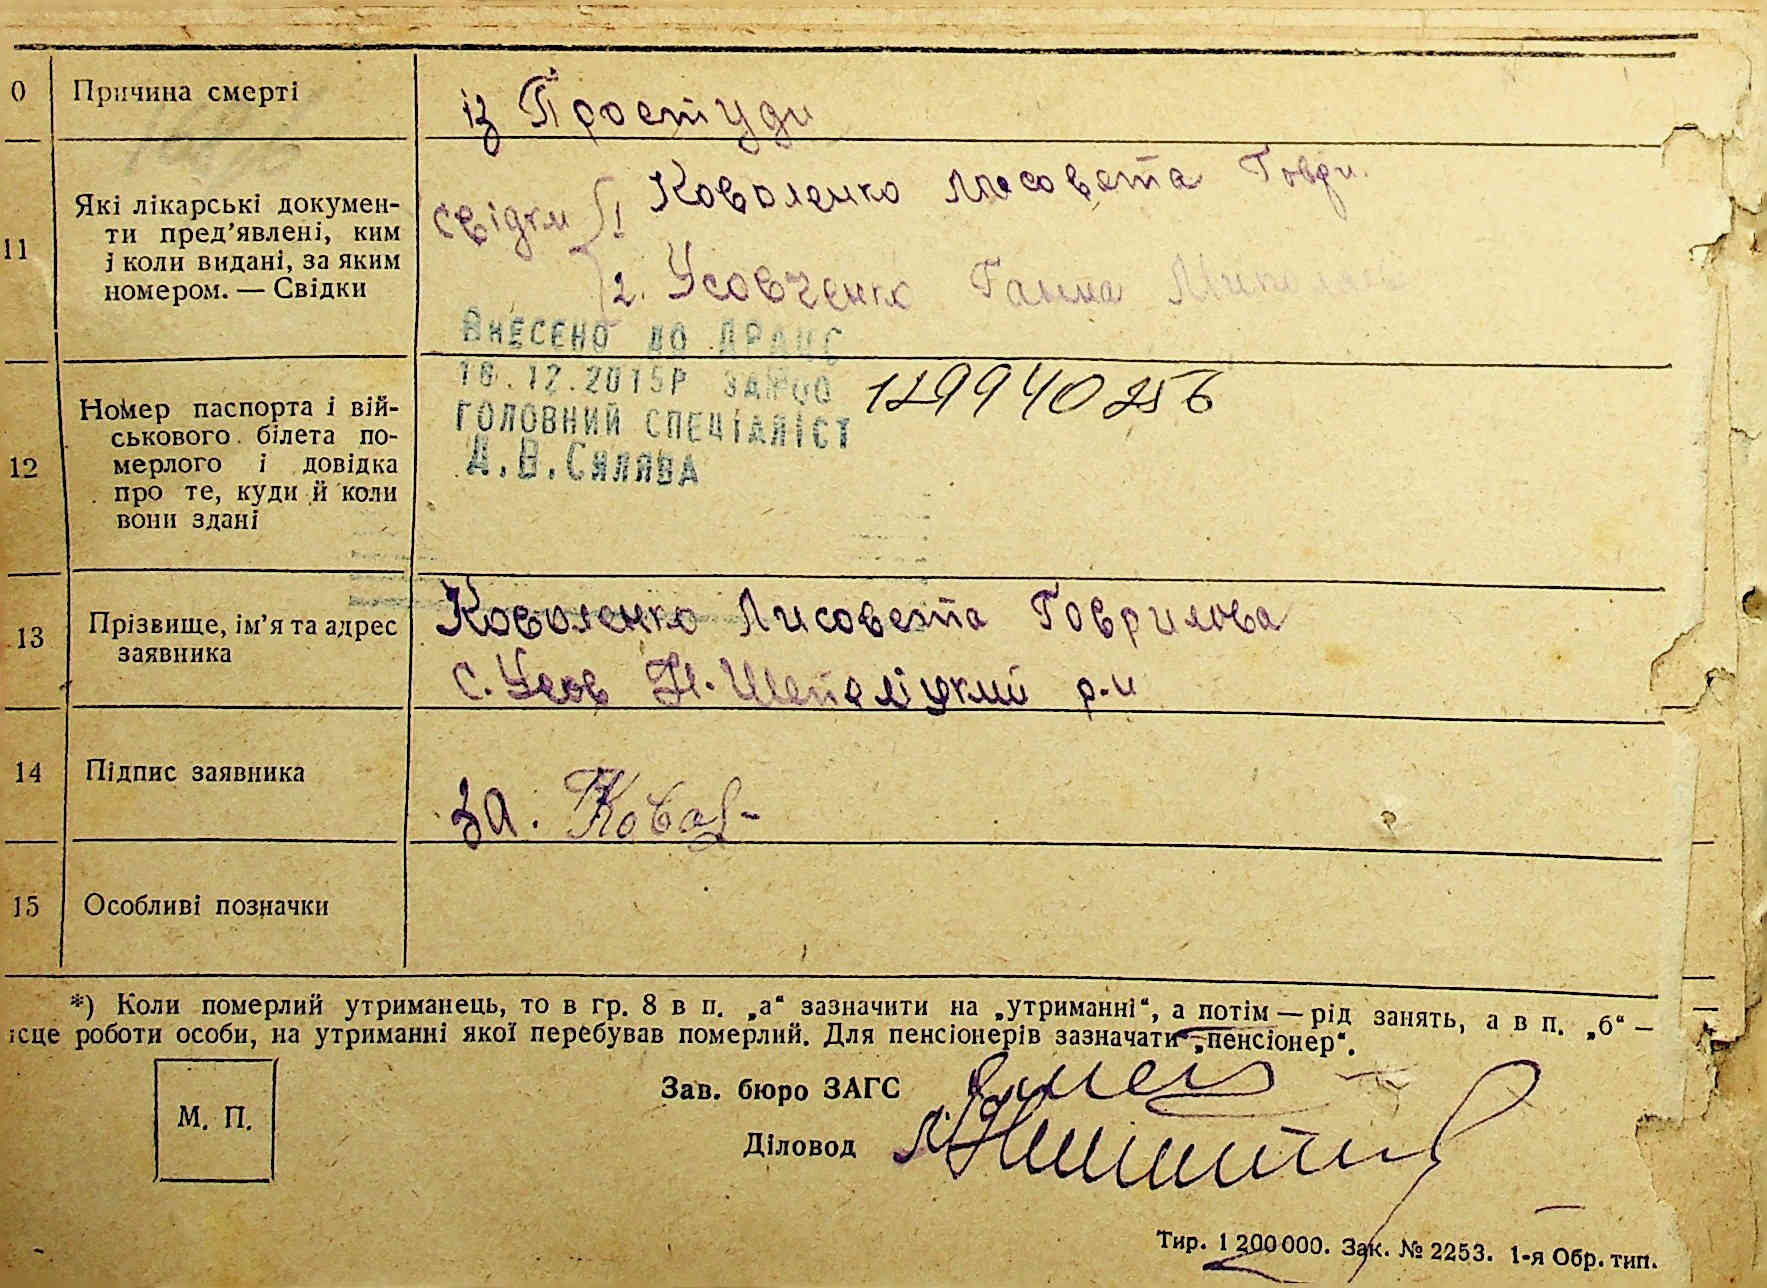 0 Причина смерті
із Простуди
11 Які лікарські докумен-
ти пред'явлені, ким
і коли видані, за яким
номером. — Свідки
свідки 1 Коволенко Лисовета Говри.
2. Усовченко Ганна
ВНЕСЕНО ДО ДРАЦС
18.12.2015Р ЗА №00 129940256
ГОЛОВНИЙ СПЕЦІАЛІСТ
Д.В.СИЛЯВА
12 Номер паспорта і вій-
ськового білета по-
мерлого і довідка
про те, куди й коли
вони здані
13 Прізвище, ім'я та адрес
заявника
Коволенко Лисовета Говрилова
с. Усов Н. Шепеліцкий р-н
14 Підпис заявника
за.
15 Особливі позначки
*) Коли померлий утриманець, то в гр. 8 в п. „а“ зазначити на „утриманні“, а потім — рід занять, а в п. „б“ —
ісце роботи особи, на утриманні якої перебував померлий. Для пенсіонерів зазначати „пенсіонер“.
М. П.
Зав. бюро ЗАГС
Діловод
Тир. 1 200 000. Зак. № 2253. 1-я Обр. тип.